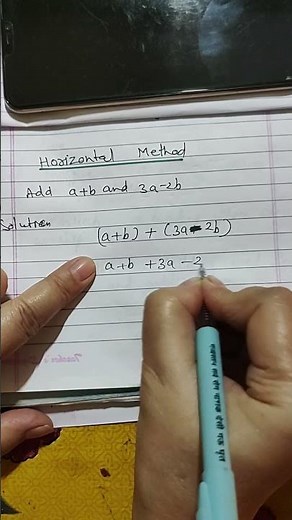 Horizontal Method
Add a+b and 3a-2b
Solution
(a+b) + (3a-2b)
a+b +3a -2